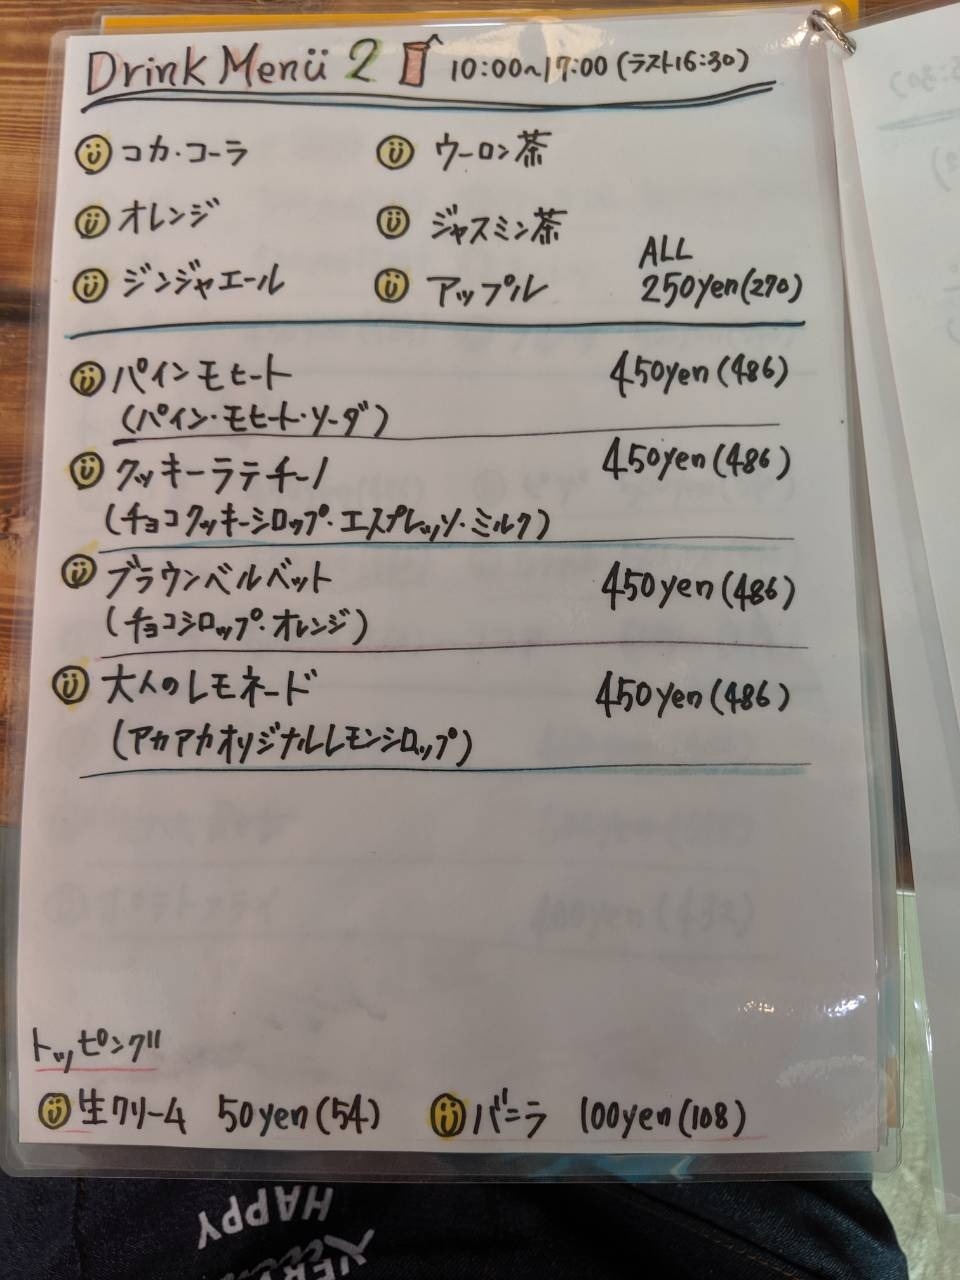 Drink Menü 2 10:00~17:00 (ラスト16:30)
コカ・コーラ ウーロン茶
オレンジ ジャスミン茶
ALL
ジンジャエール アップル 250yen(270)
パインモヒート 450yen(486)
(パイン・モヒート・ソーダ)
クッキーラテチーノ 450yen(486)
(チョコクッキーシロップ・エスプレッソ・ミルク)
ブラウンベルベット 450yen(486)
(チョコシロップ・オレンジ)
大人のレモネード 450yen(486)
(アカアカオリジナルレモンシロップ)
トッピング
生クリーム 50yen(54) バニラ 100yen(108)
HAPPY